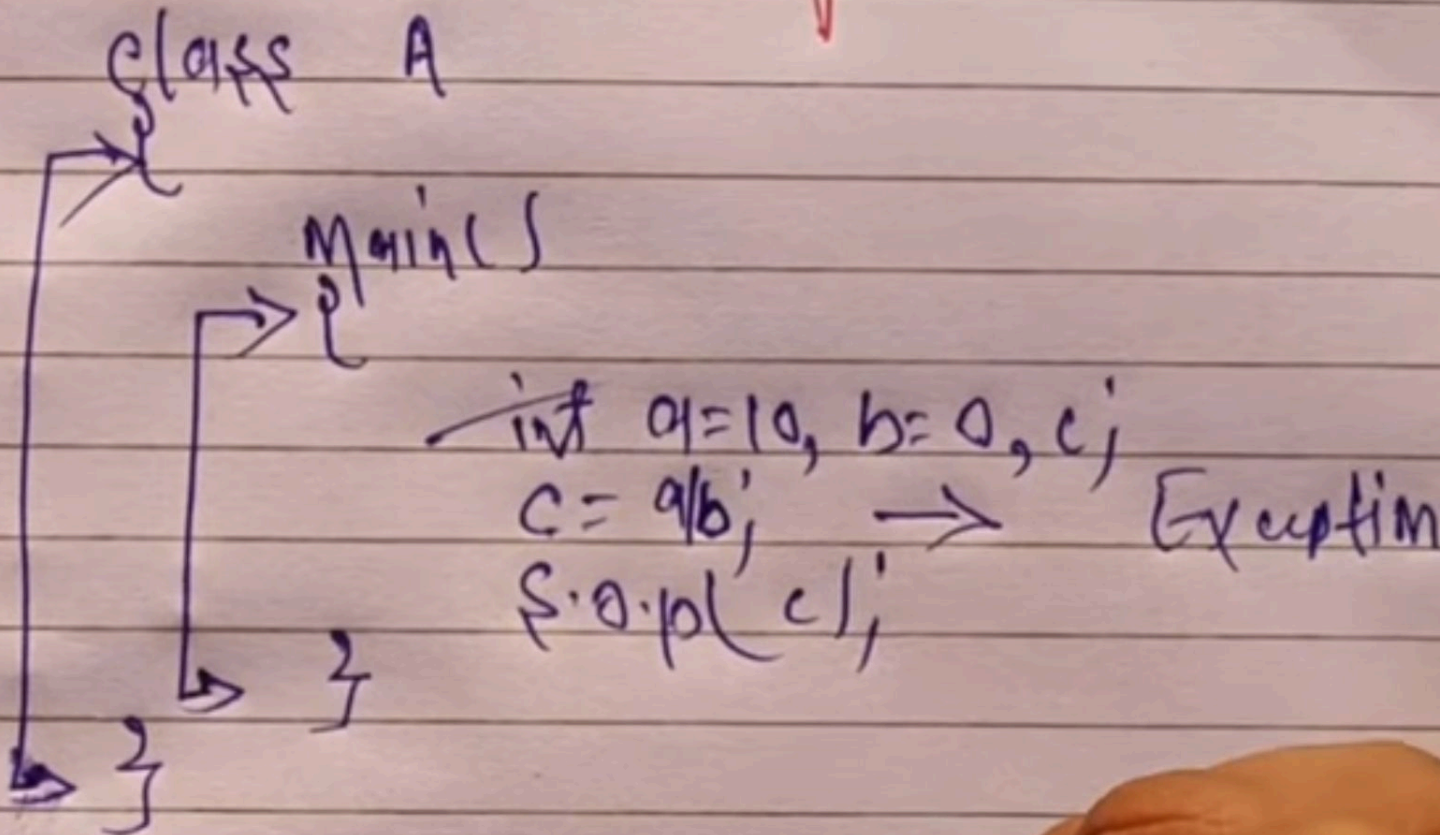 class A
{
Main()
{
int a=10, b=0, c;
c = a/b; → Exception
S.o.p( c);
}
}